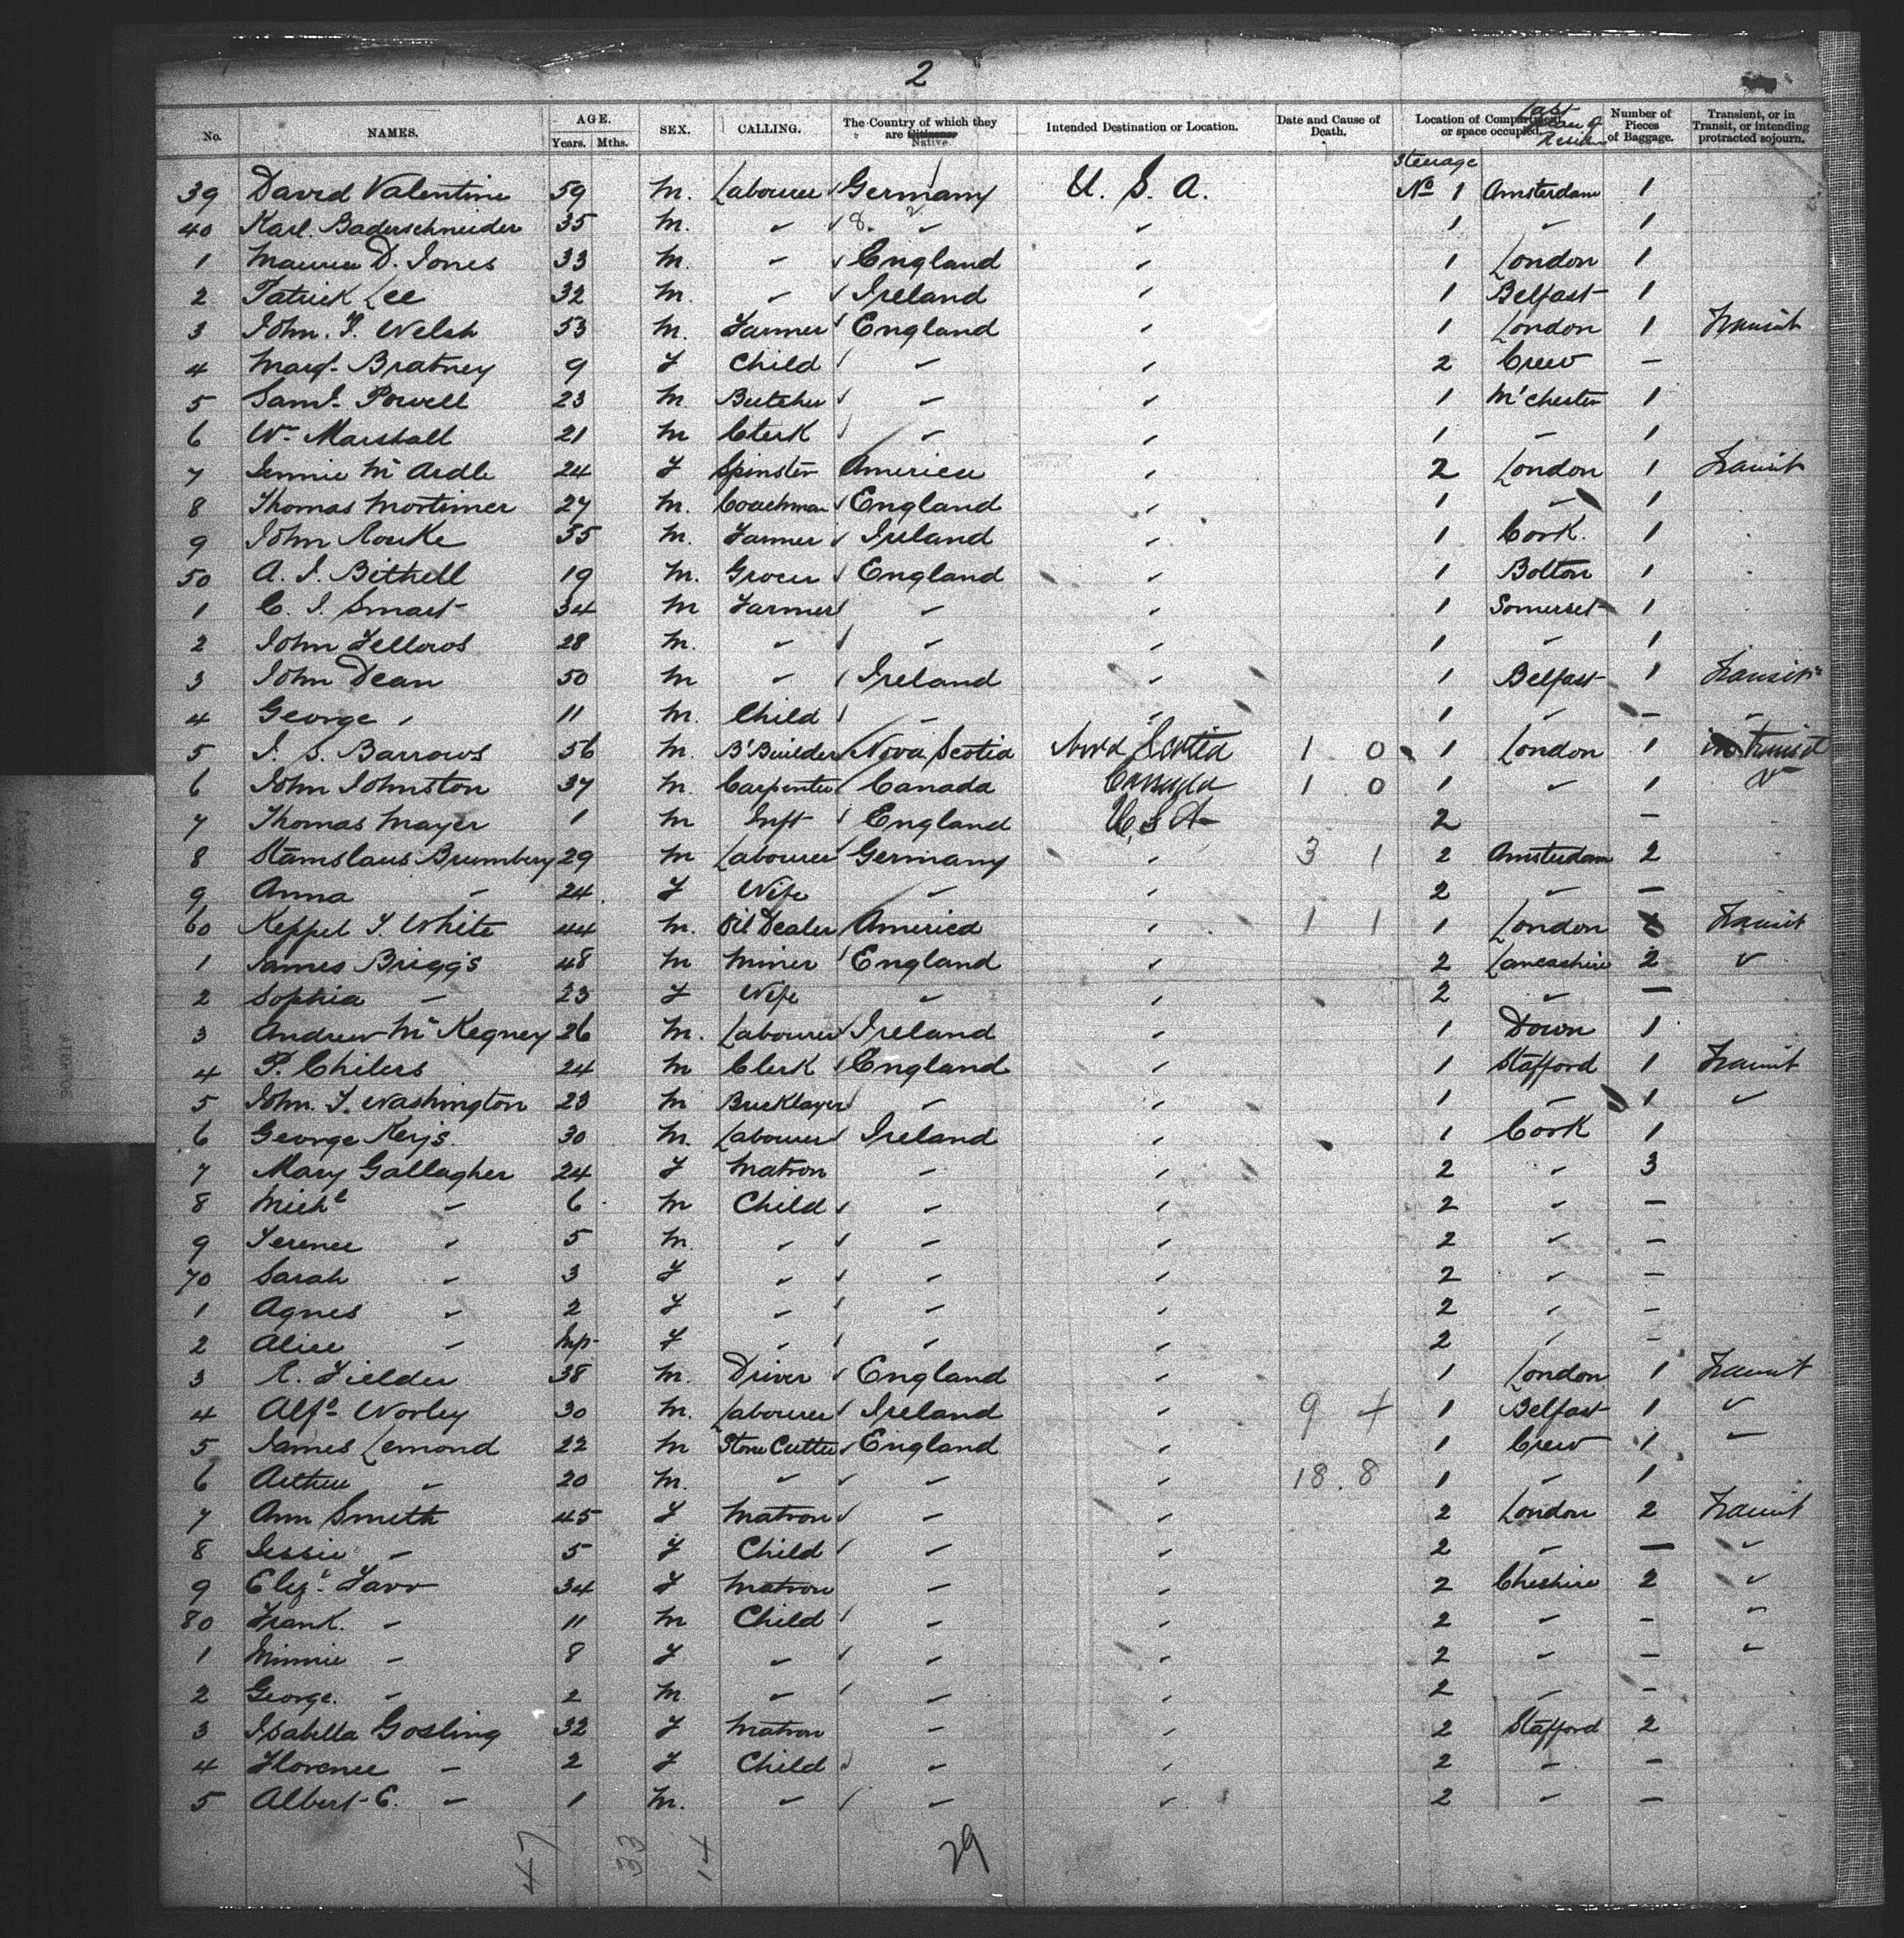 2
No. NAMES. AGE. Years. Mths. SEX. CALLING. The Country of which they are Citizens Native. Intended Destination or Location. Date and Cause of Death. Location of Compartment or space occupied. Last Place of Number of Pieces of Baggage. Transient, or in Transit, or intending protracted sojourn.
Steerage
39 David Valentine 59 M. Labourer Germany U. S. A. No 1 Amsterdam 1
40 Karl. Baderschneider 35 M. " 8. " " 1 " 1
1 Maurice D. Jones 33 M. " England " 1 London 1
2 Patrick Lee 32 M. " Ireland " 1 Belfast 1
3 John. P. Welsh 53 M. Farmer England " 1 London 1 Transit
4 Margt. Bratney 9 F Child " " 2 Crew —
5 Saml. Powell 23 M. Butcher " " 1 M'chester 1
6 Wm Marshall 21 M Clerk " " 1 " 1
7 Jennie Mc Ardle 24 F Spinster America " 2 London 1 Transit
8 Thomas Mortimer 27 M. Coachman England " 1 " 1
9 John Rourke 55 M. Farmer Ireland " 1 Cork. 1
50 A. J. Bithell 19 M. Grocer England " 1 Bolton 1
1 C. J. Smart 34 M Farmer " " 1 Somerset 1
2 John Fellows 28 M. " " " 1 " 1
3 John Dean 50 M " Ireland " 1 Belfast 1 Transit
4 George " 11 M. Child " " 1 " — "
5 J. S. Barrows 56 M. B'Builder Nova Scotia Nova Scotia 1 0 1 London 1 in transit
6 John Johnston 37 M. Carpenter Canada Canada 1 0 1 " 1 "
7 Thomas Mayer 1 M Inft England U.S.A 2 —
8 Stanislaus Brumbury 29 M Labourer Germany " 3 1 2 Amsterdam 2
9 Anna " 24 F Wife " " 2 " —
60 Keppel F. White 44 M. Oil Dealer America " 1 1 1 London Transit
1 James Briggs 48 M Miner England " 2 Lancashire 2 "
2 Sophia " 23 F Wife " " 2 " —
3 Andrew Mc Kegney 26 M. Labourer Ireland " 1 Down 1
4 P. Chilers 24 M Clerk England " 1 Stafford 1 Transit
5 John. F. Washington 23 M Bricklayer " " 1 " 1 "
6 George Keys. 30 M. Labourer Ireland " 1 Cork 1
7 Mary Gallagher 24 F Matron " " 2 " 3
8 Michl " 6 M Child " " 2 " —
9 Terence " 5 M. " " " 2 " —
70 Sarah " 3 F " " " 2 " —
1 Agnes " 2 F " " " 2 " —
2 Alice " Inf F " " " 2 " —
3 R. Fielder 38 M. Driver England " 1 London 1 Transit
4 Alfd. Worley 30 M. Labourer Ireland " 9 4 1 Belfast 1 "
5 James Lemond 22 M Stone Cutter England " 1 Crew 1 "
6 Arthur " 20 M. " " " 18. 8 1 " 1
7 Ann Smith 45 F Matron " " 2 London 2 Transit
8 Jessie " 5 F Child " " 2 " — "
9 Eliz. Farr 34 F Matron " " 2 Cheshire 2 "
80 Frank. " 11 M Child " " 2 " — "
1 Minnie " 8 F " " " 2 " — "
2 George. " 2 M " " " 2 " —
3 Isabella Gosling 32 F Matron " " 2 Stafford 2
4 Florence " 2 F Child " " 2 " —
5 Albert E. " 1 M. " " " 2 " —
47 33 14 29